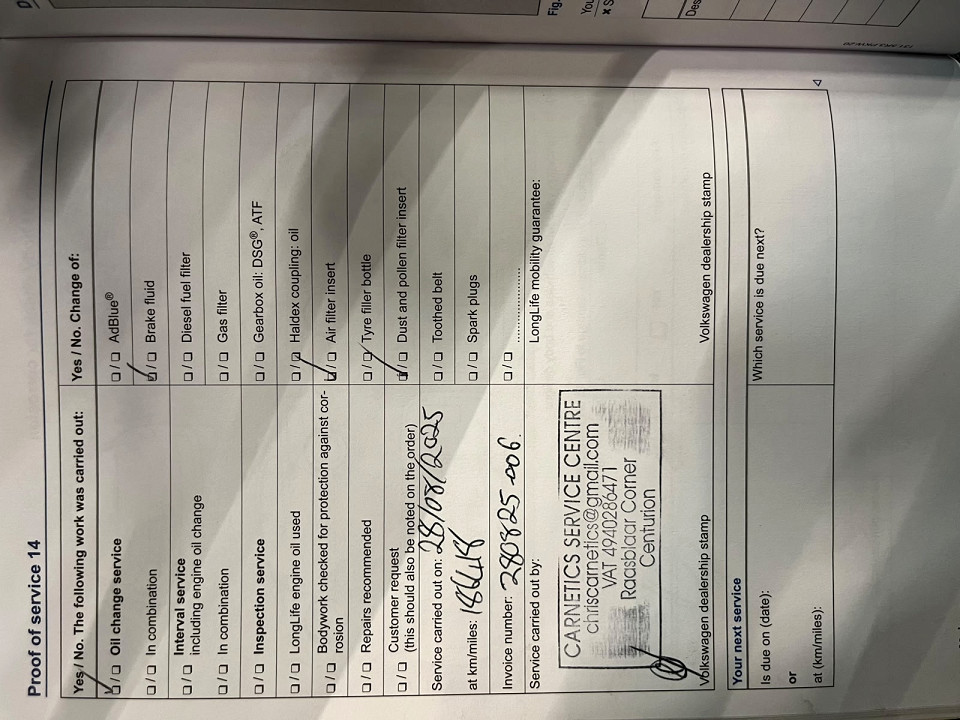 Proof of service 14
Yes / No. The following work was carried out:
☑/☐ Oil change service
☐/☐ In combination
☐/☐ Interval service
including engine oil change
☐/☐ In combination
☐/☐ Inspection service
☐/☐ LongLife engine oil used
☐/☐ Bodywork checked for protection against cor-
rosion
☐/☐ Repairs recommended
☐/☐ Customer request
(this should also be noted on the order)
Service carried out on: 28/08/2025
at km/miles: 186418
Invoice number: 280825-006.
Service carried out by:
CARNETICS SERVICE CENTRE
chriscarnetics@gmail.com
VAT 4940286471
Raasblaar Corner
Centurion
Volkswagen dealership stamp
Yes / No. Change of:
☐/☐ AdBlue®
☑/☐ Brake fluid
☐/☐ Diesel fuel filter
☐/☐ Gas filter
☐/☐ Gearbox oil: DSG®, ATF
☐/☐ Haldex coupling: oil
☑/☐ Air filter insert
☐/☐ Tyre filler bottle
☑/☐ Dust and pollen filter insert
☐/☐ Toothed belt
☐/☐ Spark plugs
☐/☐ ....................
LongLife mobility guarantee:
Volkswagen dealership stamp
Your next service
Is due on (date):
or
at (km/miles):
Which service is due next?
Fig.
You
Des